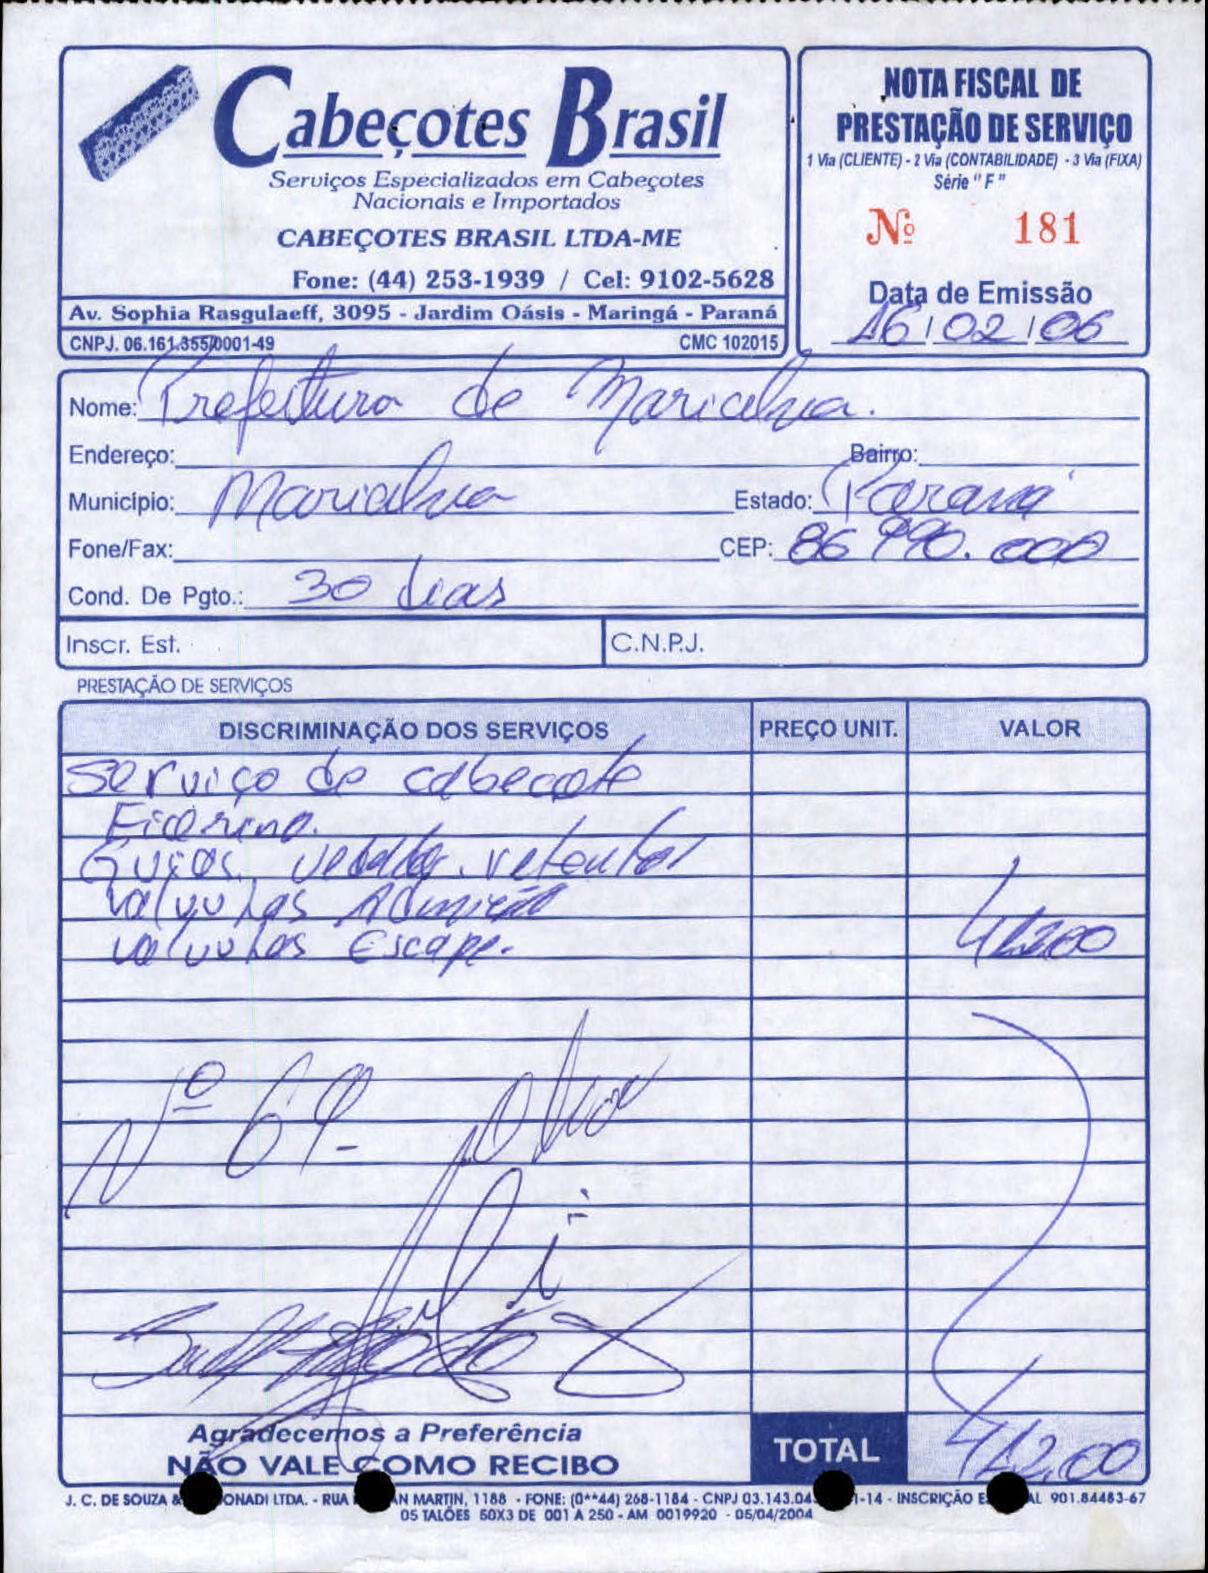 Cabeçotes Brasil
Serviços Especializados em Cabeçotes
Nacionais e Importados
CABEÇOTES BRASIL LTDA-ME
Fone: (44) 253-1939 / Cel: 9102-5628
Av. Sophia Rasgulaeff, 3095 - Jardim Oásis - Maringá - Paraná
CNPJ. 06.161.355/0001-49 CMC 102015
NOTA FISCAL DE
PRESTAÇÃO DE SERVIÇO
1 Via (CLIENTE) - 2 Via (CONTABILIDADE) - 3 Via (FIXA)
Série "F"
Nº 181
Data de Emissão
16/02/06
Nome: Prefeitura de Marialva.
Endereço: Bairro:
Município: Marialva Estado: Paraná
Fone/Fax: CEP: 86 990.000
Cond. De Pgto.: 30 dias
Inscr. Est. C.N.P.J.
PRESTAÇÃO DE SERVIÇOS
DISCRIMINAÇÃO DOS SERVIÇOS PREÇO UNIT. VALOR
Serviço de cabecote
Fiorino.
Guias, retentor
valvulas Admissão
valvulas Escape. 412,00
Nº 69
Agradecemos a Preferência
NÃO VALE COMO RECIBO
TOTAL 412,00
J. C. DE SOUZA & ONADI LTDA. - RUA AN MARTIN, 1188 - FONE: (0**44) 268-1184 - CNPJ 03.143.04 1-14 - INSCRIÇÃO E AL 901.84483-67
05 TALÕES 50X3 DE 001 A 250 - AM 0019920 - 05/04/2004